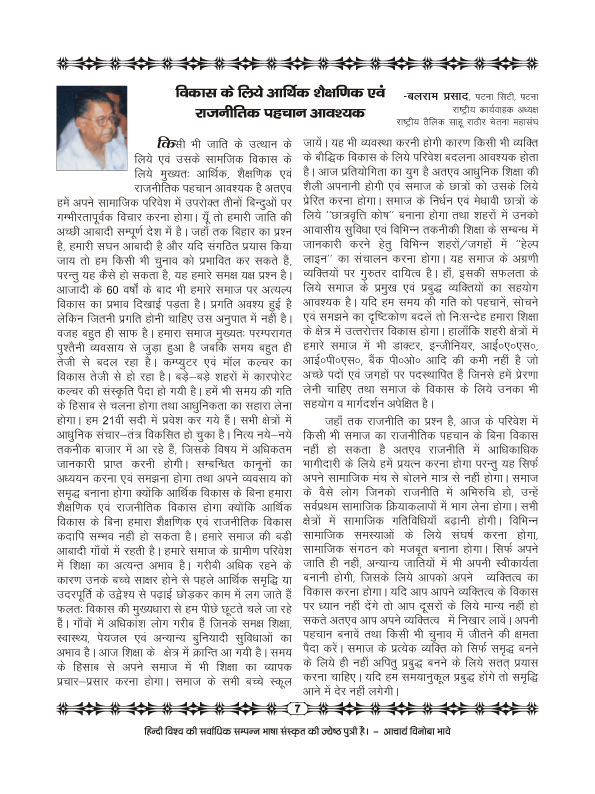 विकास के लिये आर्थिक शैक्षणिक एवं
राजनीतिक पहचान आवश्यक
-बलराम प्रसाद, पटना सिटी, पटना
राष्ट्रीय कार्यवाहक अध्यक्ष
राष्ट्रीय तैलिक साहू राठौर चेतना महासंघ
किसी भी जाति के उत्थान के
लिये एवं उसके सामजिक विकास के
लिये मुख्यतः आर्थिक, शैक्षणिक एवं
राजनीतिक पहचान आवश्यक है अतएव
हमें अपने सामाजिक परिवेश में उपरोक्त तीनों बिन्दुओं पर
गम्भीरतापूर्वक विचार करना होगा। यूँ तो हमारी जाति की
अच्छी आबादी सम्पूर्ण देश में है। जहाँ तक बिहार का प्रश्न
है, हमारी सघन आबादी है और यदि संगठित प्रयास किया
जाय तो हम किसी भी चुनाव को प्रभावित कर सकते हैं,
परन्तु यह कैसे हो सकता है, यह हमारे समक्ष यक्ष प्रश्न है।
आजादी के 60 वर्षों के बाद भी हमारे समाज पर अत्यल्प
विकास का प्रभाव दिखाई पड़ता है। प्रगति अवश्य हुई है
लेकिन जितनी प्रगति होनी चाहिए उस अनुपात में नहीं है।
वजह बहुत ही साफ है। हमारा समाज मुख्यतः परम्परागत
पुश्तैनी व्यवसाय से जुड़ा हुआ है जबकि समय बहुत ही
तेजी से बदल रहा है। कम्प्युटर एवं मॉल कल्चर का
विकास तेजी से हो रहा है। बड़े-बड़े शहरों में कारपोरेट
कल्चर की संस्कृति पैदा हो गयी है। हमें भी समय की गति
के हिसाब से चलना होगा तथा आधुनिकता का सहारा लेना
होगा। हम 21वीं सदी में प्रवेश कर गये हैं। सभी क्षेत्रों में
आधुनिक संचार-तंत्र विकसित हो चुका है। नित्य नये-नये
तकनीक बाजार में आ रहे हैं, जिसके विषय में अधिकतम
जानकारी प्राप्त करनी होगी। सम्बन्धित कानूनों का
अध्ययन करना एवं समझना होगा तथा अपने व्यवसाय को
समृद्ध बनाना होगा क्योंकि आर्थिक विकास के बिना हमारा
शैक्षणिक एवं राजनीतिक विकास होगा क्योंकि आर्थिक
विकास के बिना हमारा शैक्षणिक एवं राजनीतिक विकास
कदापि सम्भव नहीं हो सकता है। हमारे समाज की बड़ी
आबादी गाँवों में रहती है। हमारे समाज के ग्रामीण परिवेश
में शिक्षा का अत्यन्त अभाव है। गरीबी अधिक रहने के
कारण उनके बच्चे साक्षर होने से पहले आर्थिक समृद्धि या
उदरपूर्ति के उद्देश्य से पढ़ाई छोड़कर काम में लग जाते हैं
फलतः विकास की मुख्यधारा से हम पीछे छूटते चले जा रहे
हैं। गाँवों में अधिकांश लोग गरीब हैं जिनके समक्ष शिक्षा,
स्वास्थ्य, पेयजल एवं अन्यान्य बुनियादी सुविधाओं का
अभाव है। आज शिक्षा के क्षेत्र में क्रान्ति आ गयी है। समय
के हिसाब से अपने समाज में भी शिक्षा का व्यापक
प्रचार-प्रसार करना होगा। समाज के सभी बच्चे स्कूल
जायें। यह भी व्यवस्था करनी होगी कारण किसी भी व्यक्ति
के बौद्धिक विकास के लिये परिवेश बदलना आवश्यक होता
है। आज प्रतियोगिता का युग है अतएव आधुनिक शिक्षा की
शैली अपनानी होगी एवं समाज के छात्रों को उसके लिये
प्रेरित करना होगा। समाज के निर्धन एवं मेधावी छात्रों के
लिये "छात्रवृत्ति कोष" बनाना होगा तथा शहरों में उनको
आवासीय सुविधा एवं विभिन्न तकनीकी शिक्षा के सम्बन्ध में
जानकारी करने हेतु विभिन्न शहरों/जगहों में "हेल्प
लाइन" का संचालन करना होगा। यह समाज के अग्रणी
व्यक्तियों पर गुरुतर दायित्व है। हाँ, इसकी सफलता के
लिये समाज के प्रमुख एवं प्रबुद्ध व्यक्तियों का सहयोग
आवश्यक है। यदि हम समय की गति को पहचानें, सोचने
एवं समझने का दृष्टिकोण बदलें तो निःसन्देह हमारा शिक्षा
के क्षेत्र में उत्तरोत्तर विकास होगा। हालाँकि शहरी क्षेत्रों में
हमारे समाज में भी डाक्टर, इन्जीनियर, आई०ए०एस०,
आई०पी०एस०, बैंक पी०ओ० आदि की कमी नहीं है जो
अच्छे पदों एवं जगहों पर पदस्थापित हैं जिनसे हमें प्रेरणा
लेनी चाहिए तथा समाज के विकास के लिये उनका भी
सहयोग व मार्गदर्शन अपेक्षित है।
जहाँ तक राजनीति का प्रश्न है, आज के परिवेश में
किसी भी समाज का राजनीतिक पहचान के बिना विकास
नहीं हो सकता है अतएव राजनीति में आधिकाधिक
भागीदारी के लिये हमें प्रयत्न करना होगा परन्तु यह सिर्फ
अपने सामाजिक मंच से बोलने मात्र से नहीं होगा। समाज
के वैसे लोग जिनको राजनीति में अभिरुचि हो, उन्हें
सर्वप्रथम सामाजिक क्रियाकलापों में भाग लेना होगा। सभी
क्षेत्रों में सामाजिक गतिविधियाँ बढ़ानी होगी। विभिन्न
सामाजिक समस्याओं के लिये संघर्ष करना होगा,
सामाजिक संगठन को मजबूत बनाना होगा। सिर्फ अपने
जाति ही नहीं, अन्यान्य जातियों में भी अपनी स्वीकार्यता
बनानी होगी, जिसके लिये आपको अपने व्यक्तित्व का
विकास करना होगा। यदि आप आपने व्यक्तित्व के विकास
पर ध्यान नहीं देंगे तो आप दूसरों के लिये मान्य नहीं हो
सकते अतएव आप अपने व्यक्तित्व में निखार लावें। अपनी
पहचान बनावें तथा किसी भी चुनाव में जीतने की क्षमता
पैदा करें। समाज के प्रत्येक व्यक्ति को सिर्फ समृद्ध बनने
के लिये ही नहीं अपितु प्रबुद्ध बनने के लिये सतत् प्रयास
करना चाहिए। यदि हम समयानुकूल प्रबुद्ध होंगे तो समृद्धि
आने में देर नहीं लगेगी।
7
हिन्दी विश्व की सर्वाधिक सम्पन्न भाषा संस्कृत की ज्येष्ठ पुत्री है। - आचार्य विनोबा भावे